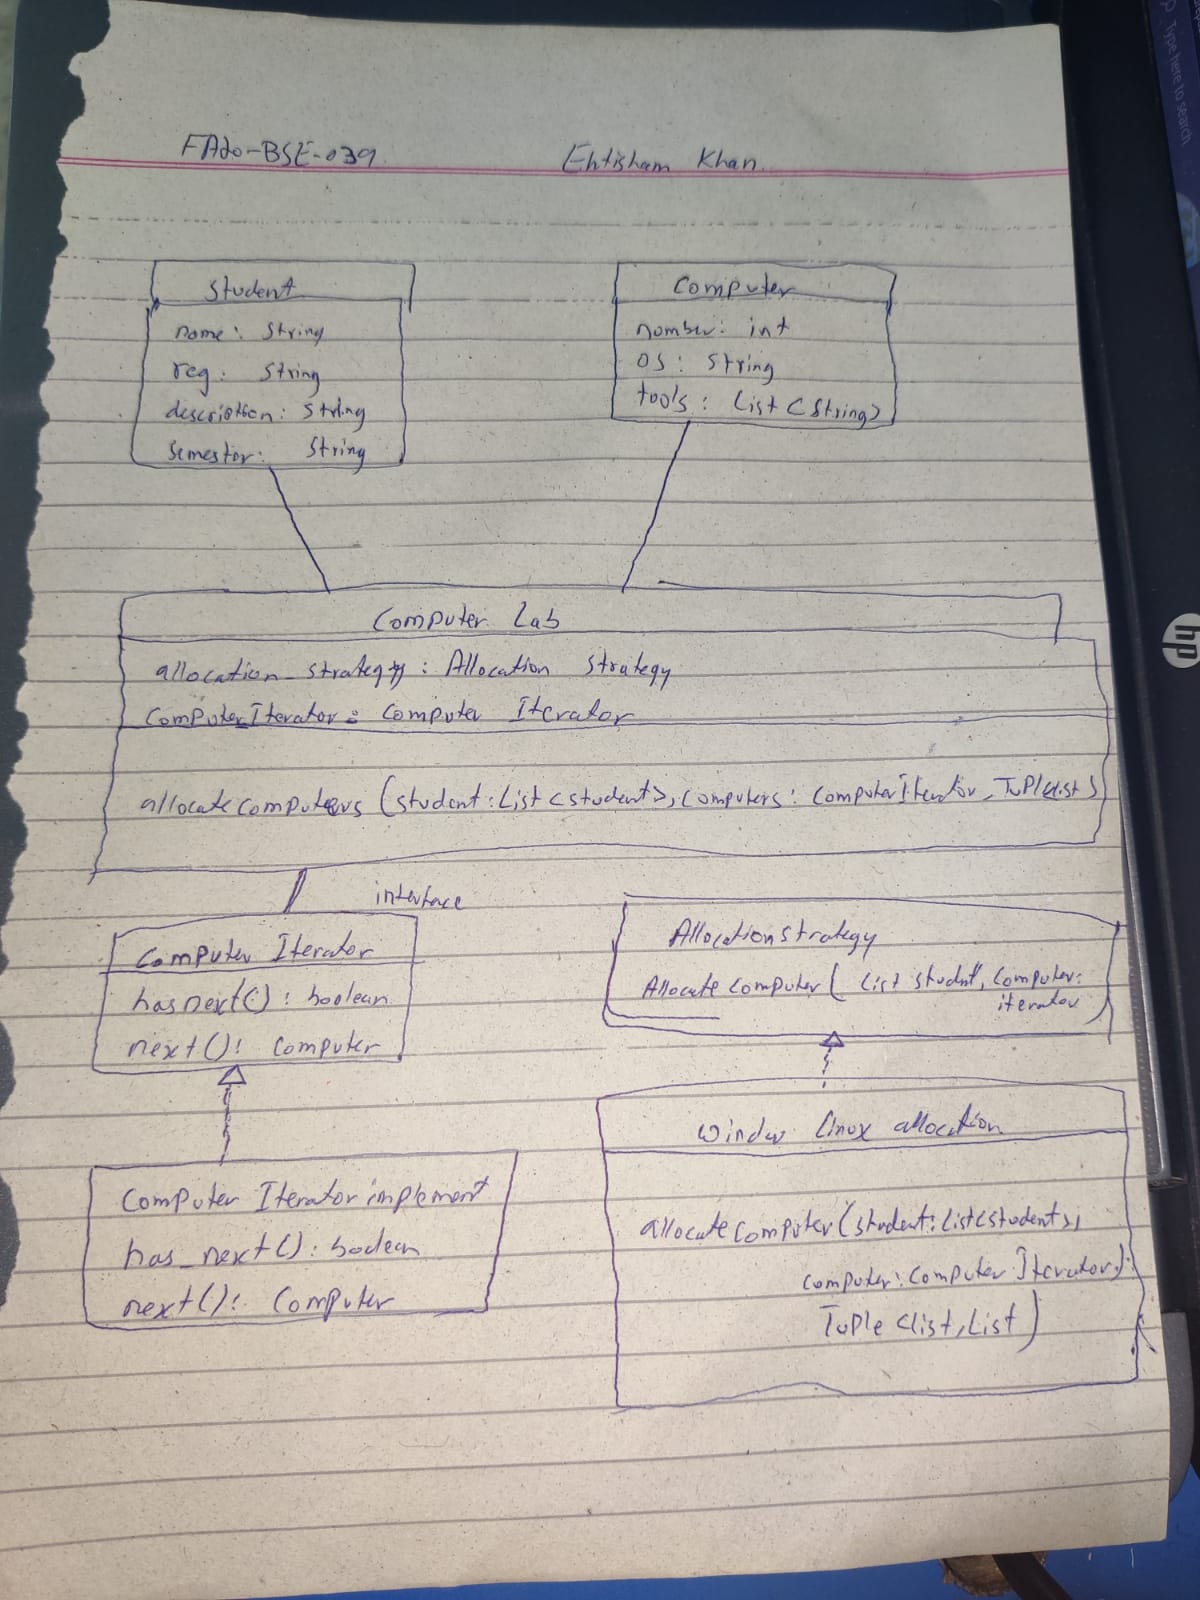 FA20-BSE-039
Ehtisham Khan
Student
name: String
reg: String
description: String
Semester: String
Computer
number: int
OS: String
tools: List<String>
Computer Lab
allocation_strategy: Allocation Strategy
ComputerIterator: Computer Iterator
allocate computers (student: List<student>, Computers: ComputerIterator, Tuple<list>)
interface
Computer Iterator
hasnext(): boolean
next(): Computer
Allocationstrategy
Allocate Computer( List student, Computer:
iterator )
Computer Iterator implement
has_next(): boolean
next(): Computer
Window Linux allocation
allocate computer(student: List<students>,
Computer: Computer Iterator):
Tuple <list, List)
Type here to search
hp